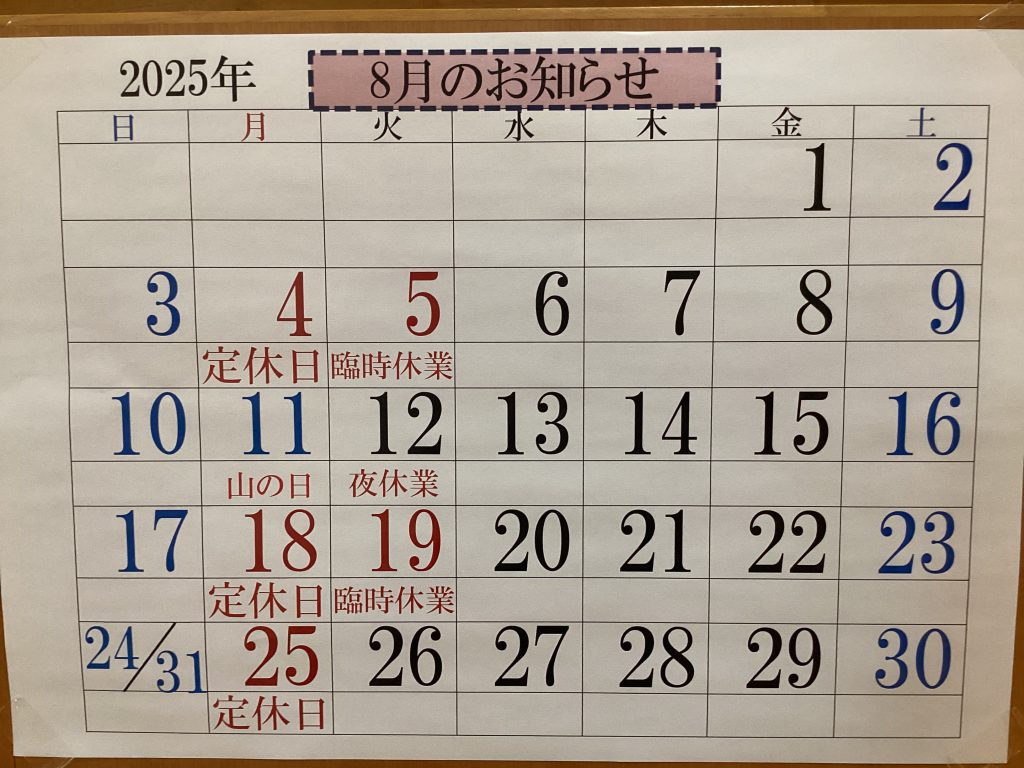 2025年 8月のお知らせ
日 月 火 水 木 金 土
1 2
3 4 5 6 7 8 9
定休日 臨時休業
10 11 12 13 14 15 16
山の日 夜休業
17 18 19 20 21 22 23
定休日 臨時休業
24/31 25 26 27 28 29 30
定休日